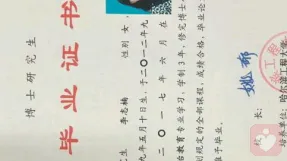 博士研究生
毕业证书
究生 李志楠 性别 女，
九年五月十日生，于二〇一二年九
二〇一七年六
治教育专业学习，学制3年，修完博士
划规定的全部课程，成绩合格，毕业论
准予毕业。
校长：
培养单位：哈尔滨工程大学